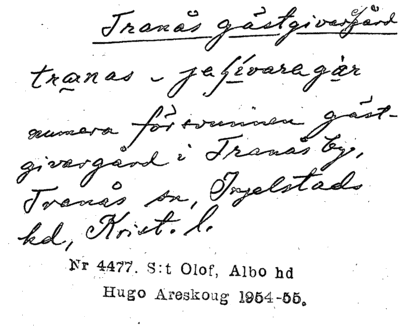 Tranås gästgivargård
tranas - jaʃívaragàr
numera försvunnen gäst-
givargård i Tranås by,
Tranås sn, Ingelstads
hd, Krist. l.
Nr 4477. S:t Olof, Albo hd
Hugo Areskoug 1954-55.